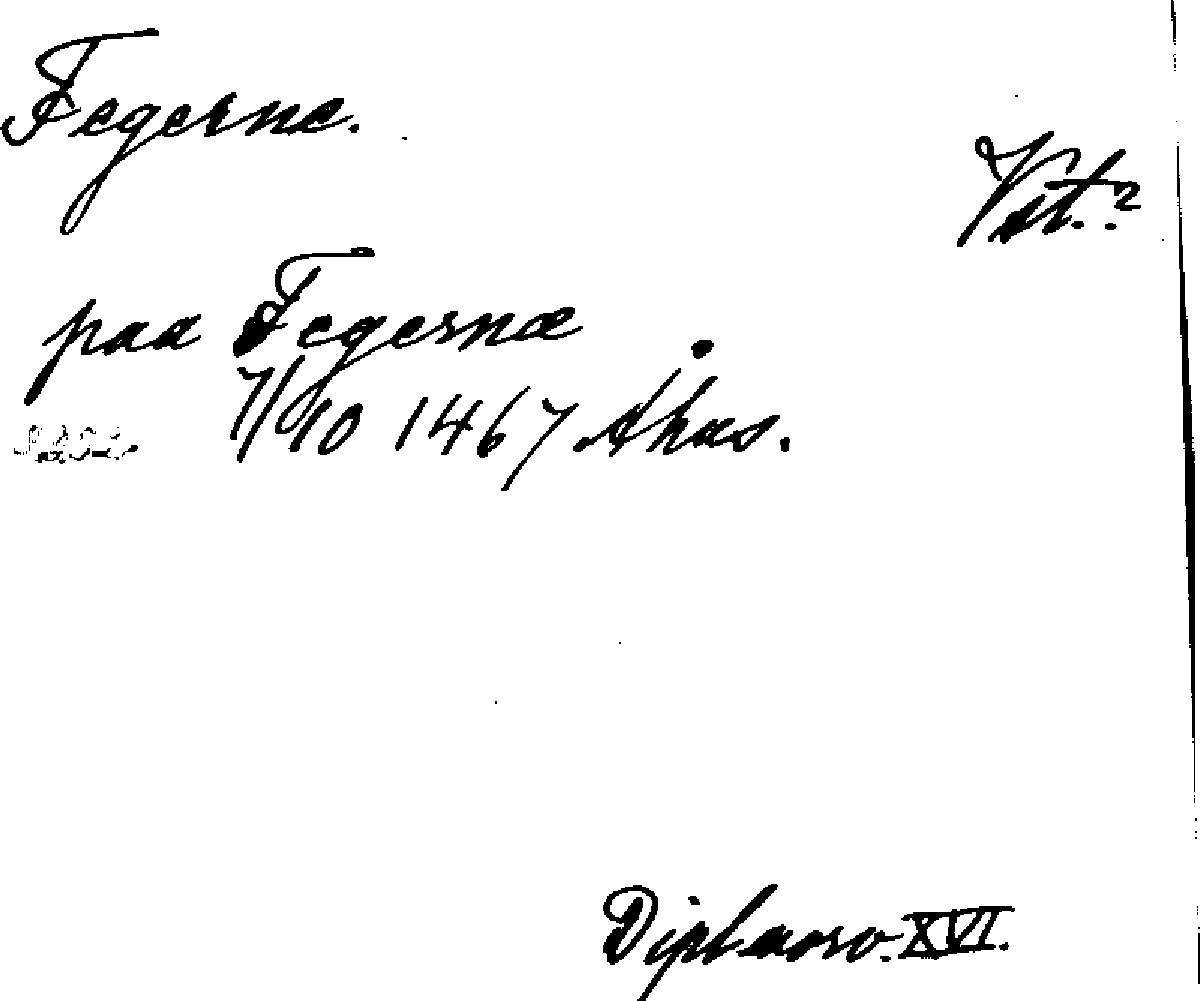 Fegerne.
Vst.?
paa Fegernæ
7/10 1467 Ahus.
Dipl. norv. XVI.